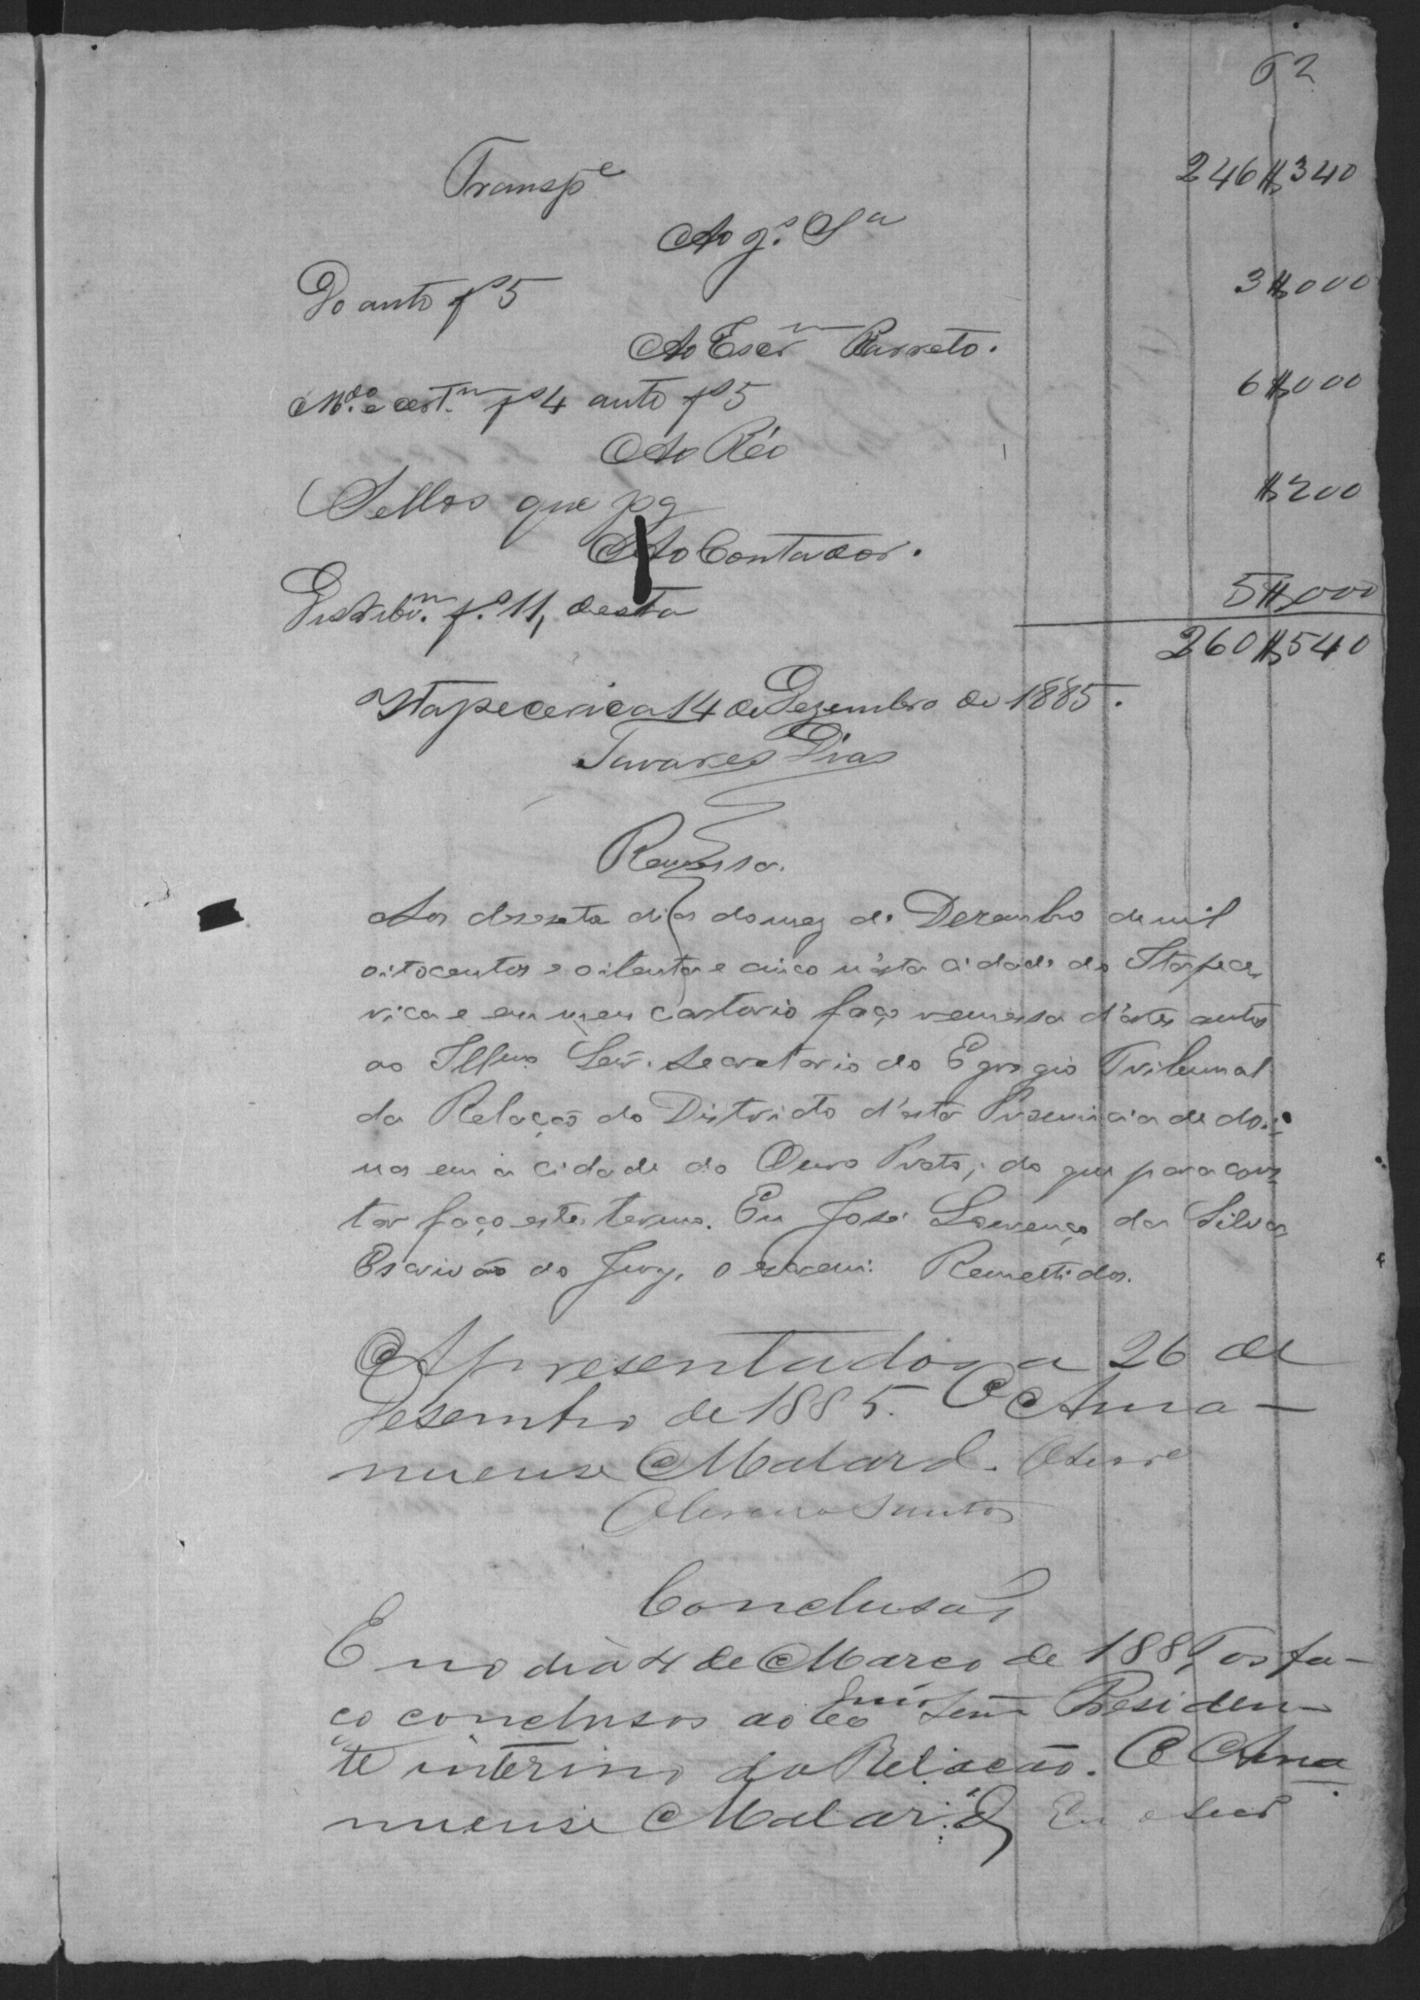 62
Transpe 246$340
Ao
Do auto fs 5 3$000
Ao Escrm Barreto.
Mdo e certm fs 4 auto fs 5 6$000
Ao Réo
Sellos que pg $200
Ao Contador.
Distribm. fs. 11, desta 5$000
260$540
Itapecerica 14 de Dezembro de 1885.
Tavares Dias
Remessa.
Aos deseseta dias do mez de Dezembro de mil
oitocentos e oitenta e cinco n'esta cidade de Itapece
rica e em meu cartorio faço remessa d'estes autos
ao Illmo Senr. Secretario do Egregio Tribunal
da Relação do Districto d'esta Provincia de
nas em a cidade do Ouro Preto; do que para cons
tar faço este termo. Eu José Lourenço da Silva
Escrivão do Jury, o escrevi. Remettidos.
Apresentados a 26 de
Desembro de 1885. O Ama-
nuense Malard.
Santos
Conclusão
E no dia 4 de Março de 188 os fa-
ço conclusos ao Senr Presiden-
te interino da Relação. O Ama
nuense Malard